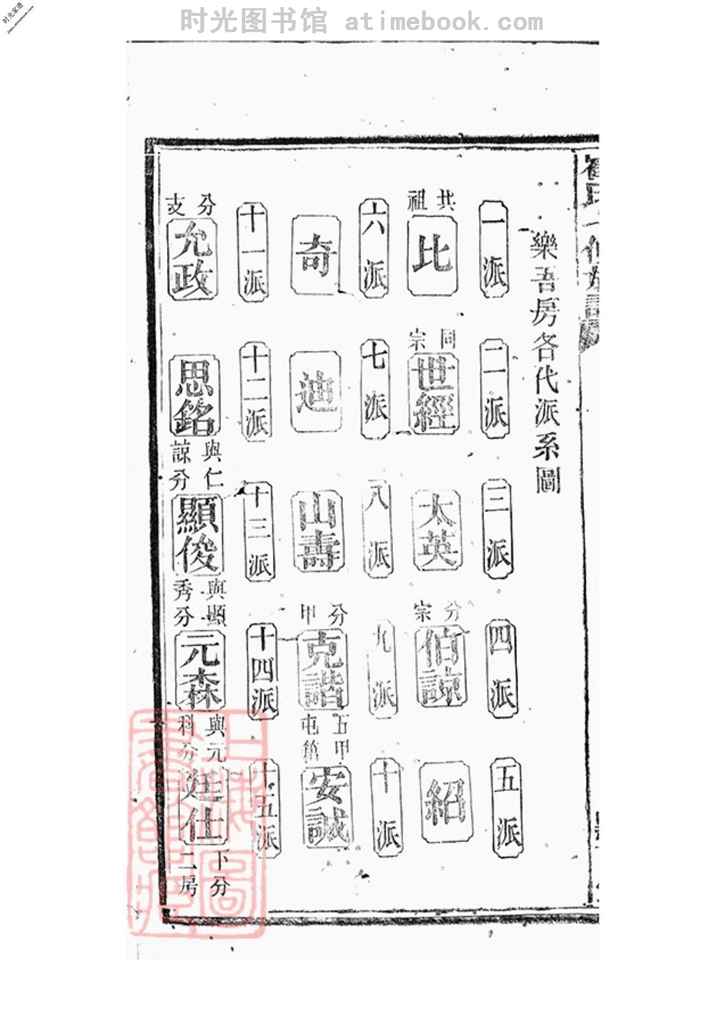 时光图书馆 atimebook.com
樂吾房各代派系圖
一派
二派
三派
四派
五派
共祖
比
同宗
世經
太英
分宗
伯諒
紹
六派
七派
八派
九派
十派
奇
迪
山壽
分甲
克諧
五甲
屯笛
安誠
十一派
十二派
十三派
十四派
十五派
分支
允政
思銘
與仁
諒分
顯俊
與顯
秀分
元森
與元
科分
廷仕
下分
二房